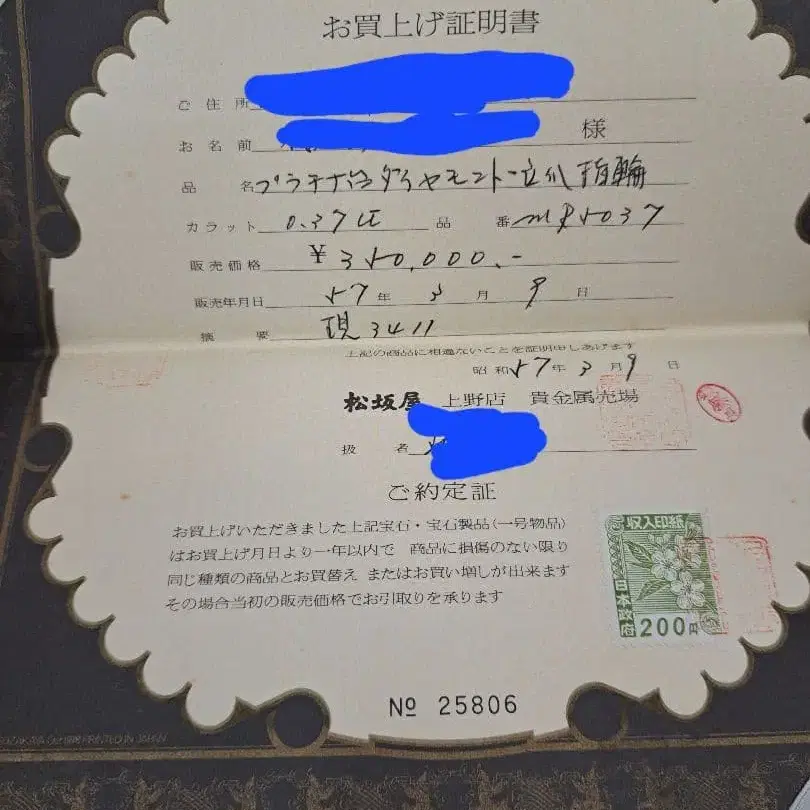 お買上げ証明書
ご住所
お名前 様
品名 プラチナ台ダイヤモンド立爪指輪
カラット 0.37ct 品番 MR5037
販売価格 ¥350,000.-
販売年月日 57年3月9日
摘要 現3411
上記の商品に相違ないことを証明申しあげます
昭和57年3月9日
松坂屋 上野店 貴金属売場
扱者
ご約定証
お買上げいただきました上記宝石・宝石製品(一号物品)
はお買上げ月日より一年以内で 商品に損傷のない限り
同じ種類の商品とお買替え またはお買い増しが出来ます
その場合当初の販売価格でお引取りを承ります
収入印紙
日本政府
200円
№ 25806